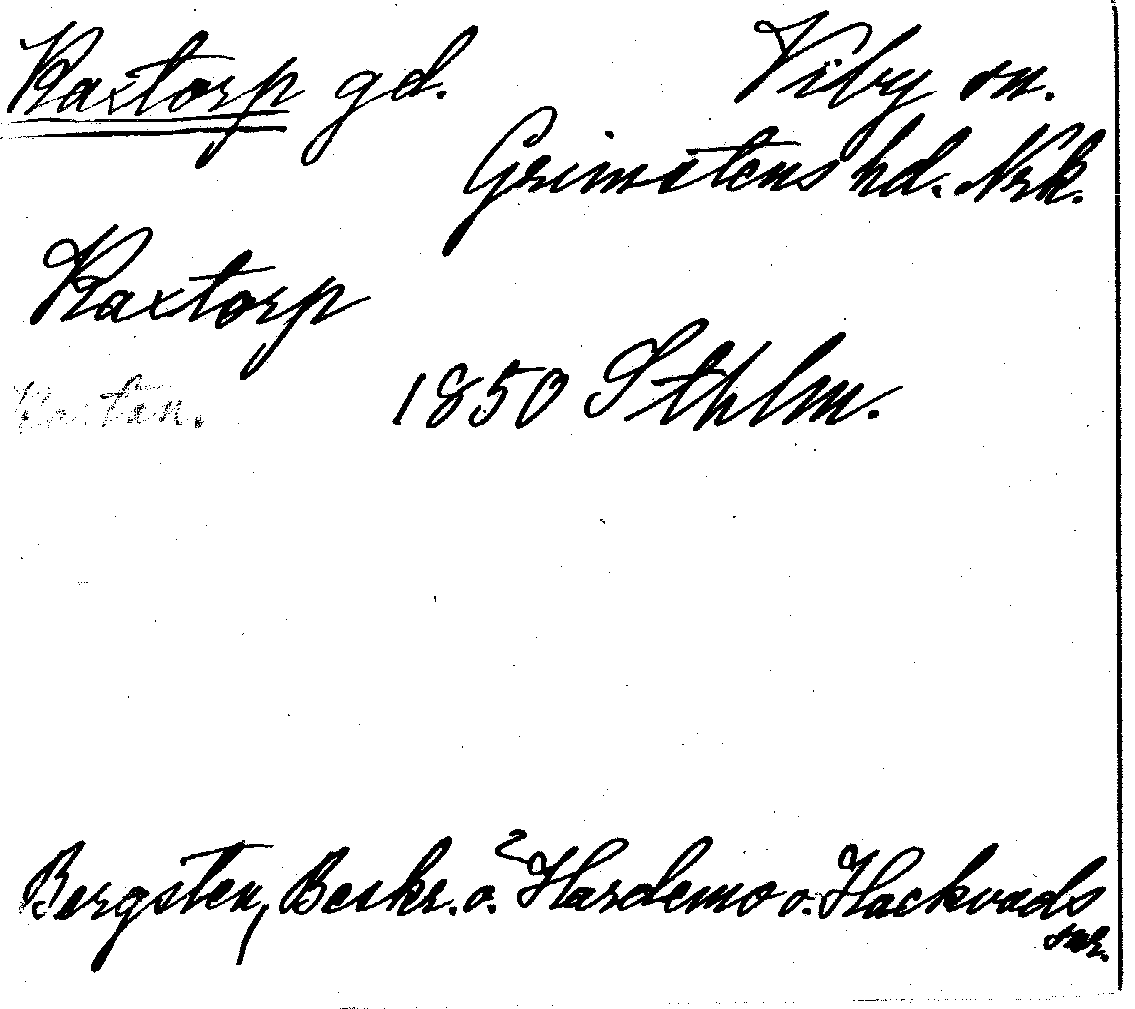 Raxtorp gd. Viby sn.
Grimstens hd. Nrk.
Raxtorp
1850 Sthlm.
Bergsten, Beskr. o. Hardemo o. Hackvads
snr.